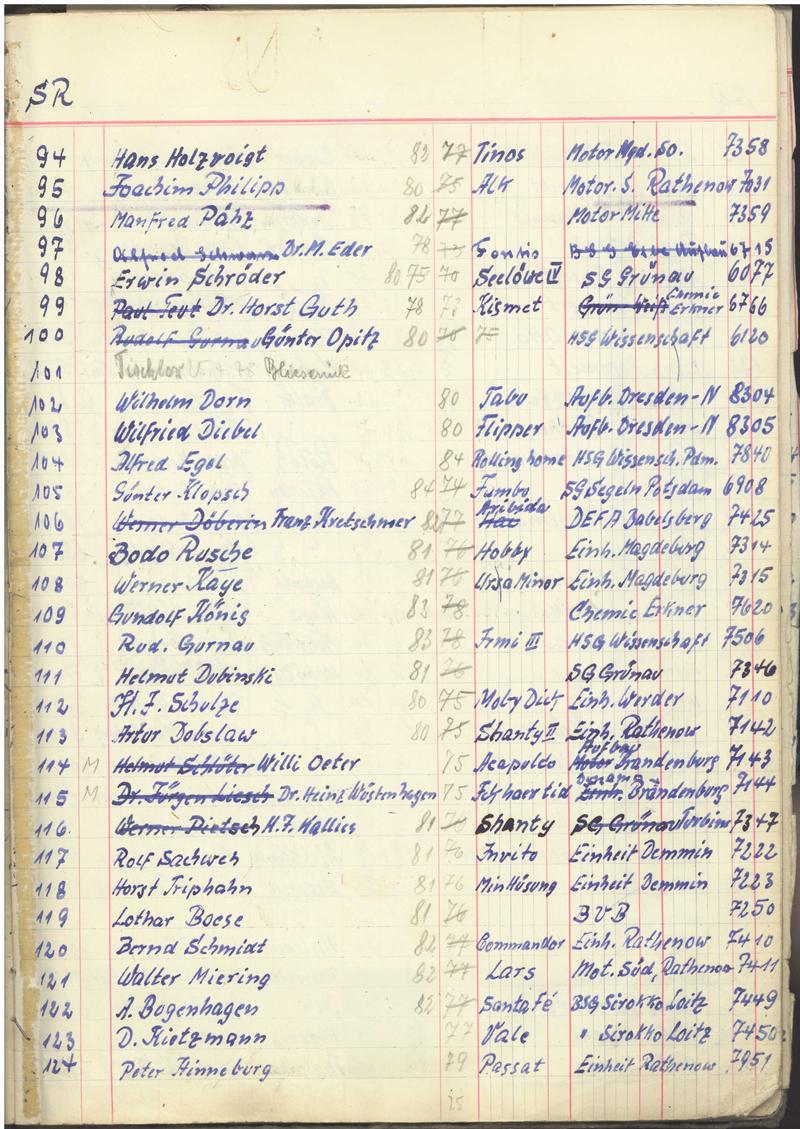 SR
94 Hans Holzvoigt 82 77 Tinos Motor Mgd. So. 7358
95 Joachim Philipp 80 75 Alk Motor. S. Rathenow 7031
96 Manfred Pähz 82 77 Motor Mitte 7359
97 Dr. M. Eder 78 6715
98 Erwin Schröder 80 75 70 Seelöwe IV SG Grünau 6077
99 Dr. Horst Guth 78 73 Kismet Chemie Erkner 6766
100 Rudolf Gurnau Günter Opitz 80 76 75 HSG Wissenschaft 6120
101 Tischler
102 Wilhelm Dorn 80 Tabu Aufb. Dresden-N 8304
103 Wilfried Diebel 80 Flipper Aufb. Dresden-N 8305
104 Alfred Egel 84 Rolling home HSG Wissensch. Pdm. 7840
105 Günter Klopsch 84 74 Jumbo SG Segeln Potsdam 6908
106 Werner Döberin Franz Kretschmer 82 77 DEFA Babelsberg 7425
107 Bodo Rusche 81 76 Hobby Einh. Magdeburg 7314
108 Werner Kaye 81 76 Ursa Minor Einh. Magdeburg 7315
109 Gundolf König 83 78 Chemie Erkner 7620
110 Rud. Gurnau 83 78 Irmi III HSG Wissenschaft 7506
111 Helmut Dubinski 81 76 SG Grünau 7346
112 H. J. Schulze 80 75 Moby Dict Einh. Werder 7110
113 Artur Dobslaw 80 75 Shanty II Einh. Rathenow 7142
114 M Helmut Schlüter Willi Oeter 75 Acapulco Aufbau Motor Brandenburg 7143
115 M Dr. Jürgen Liesch Dr. Heinz Wüstenhagen 75 Dynamo Einh. Brandenburg 7144
116. Werner Pietsch H. J. Kallies 81 76 Shanty SG Grünau Turbine 7347
117 Rolf Sachweh 81 76 Invito Einheit Demmin 7222
118 Horst Triphahn 81 76 Min Hüsung Einheit Demmin 7223
119 Lothar Boese 81 76 BVB 7250
120 Bernd Schmidt 82 77 Commandor Einh. Rathenow 7410
121 Walter Miering 82 77 Lars Mot. Süd, Rathenow 7411
122 A. Bugenhagen 82 77 Santa Fé BSG Sirokko Loitz 7449
123 D. Kietzmann 77 Vale " Sirokko Loitz 7450
124 Peter Hinneburg 79 Passat Einheit Rathenow 7951
25